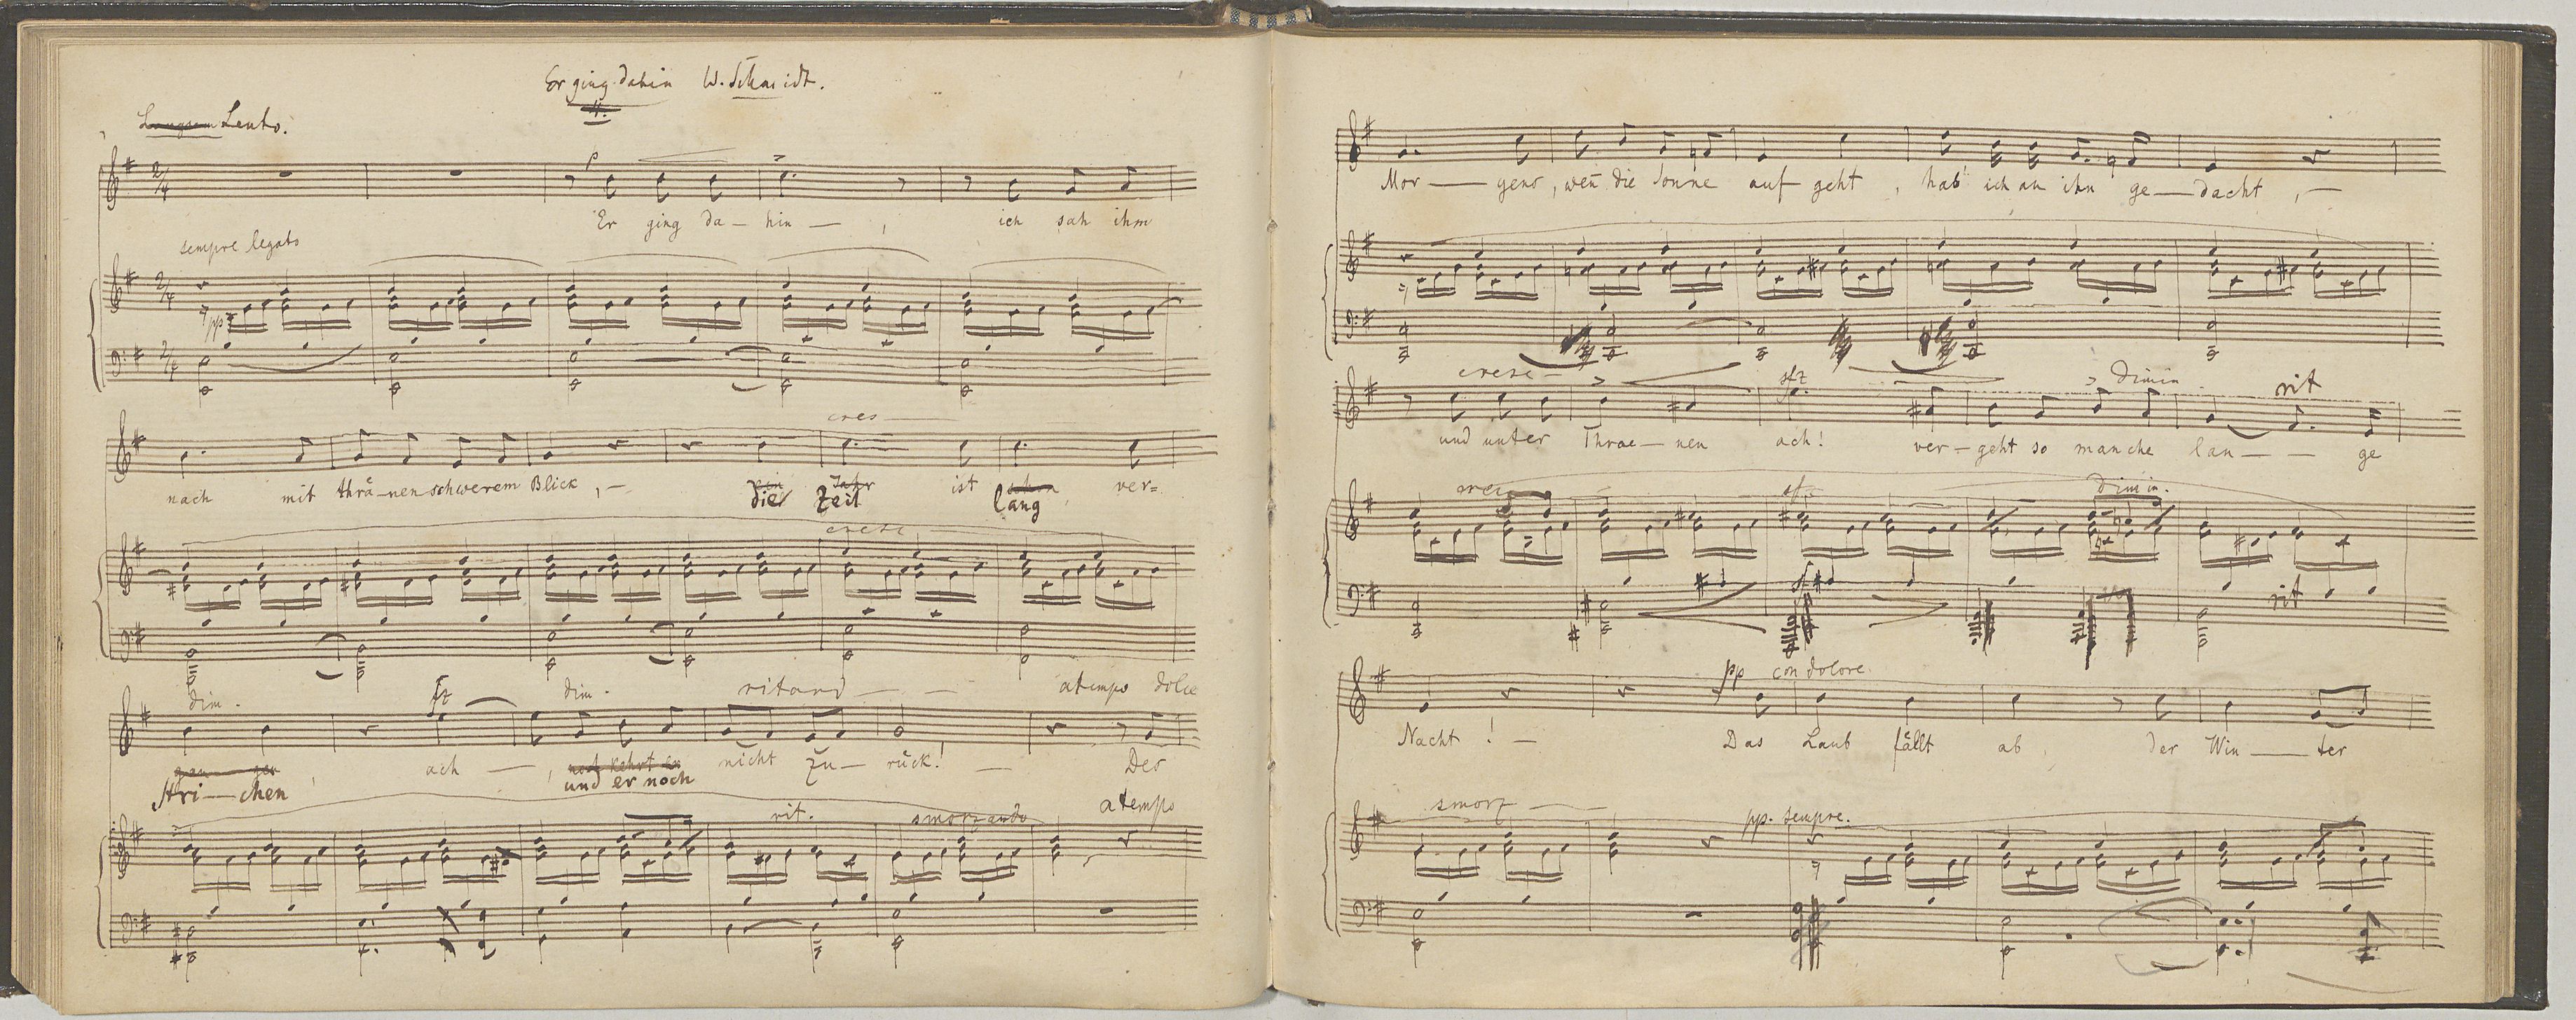 Er ging dahin W. Schmidt.
Langsam Lento.
2/4 p
Er ging da – hin — , ich sah ihm
sempre legato
2/4 pp
2/4
cres —
nach mit thrä – nen schwerem Blick , – ein Jahr ist schon ver=
die Zeit lang
cresc
dim. fz dim. ritard — — a tempo dolce
gan — gen , ach — , noch kehrt er nicht zu — rück! — Der
stri — chen und er noch
rit. smorzando a tempo
Mor — gens , weñ die Soñe auf geht , hab' ich an ihn ge — dacht , —
cresc — > sfz > dimin. rit
und unter Thrae — nen ach! ver – geht so manche lan — — ge
cres sf dimin.
rit
pp con dolore
Nacht ! — Das Laub fällt ab , der Win — ter
smorz — — pp. sempre.